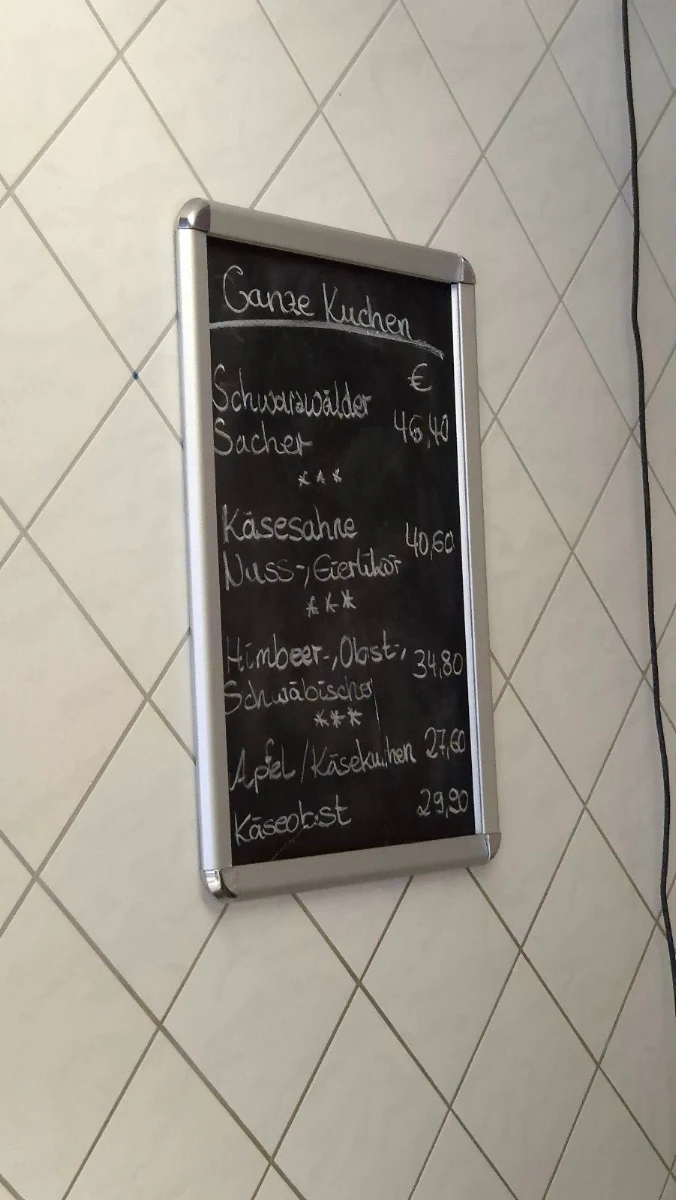 Ganze Kuchen
€
Schwarzwälder
Sacher 46,40
***
Käsesahne
Nuss-, Eierlikör 40,60
***
Himbeer-, Obst-,
Schwäbische 34,80
***
Apfel / Käsekuchen 27,60
Käseobst 29,90